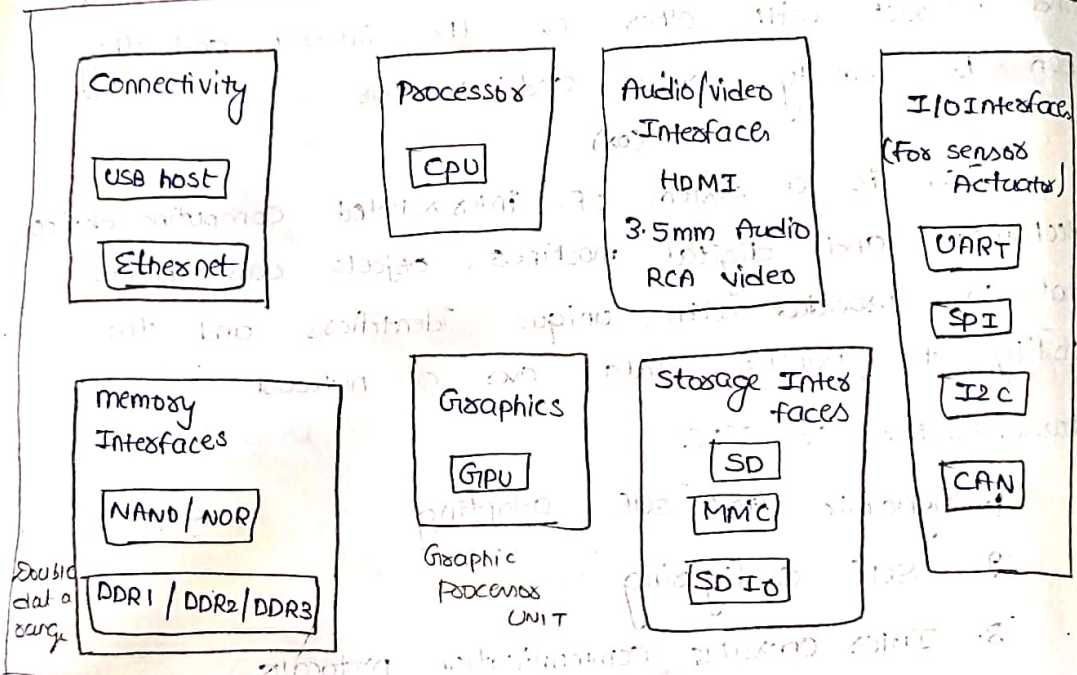 Connectivity
USB host
Ethernet
Processor
CPU
Audio/video
Interfaces
HDMI
3.5mm Audio
RCA video
I/O Interfaces
(For sensor
Actuator)
UART
SPI
I2C
CAN
memory
Interfaces
NAND/NOR
DDR1/DDR2/DDR3
Double
data
range
Graphics
GPU
Graphic
Processor
UNIT
Storage Inter
faces
SD
MMC
SDIO